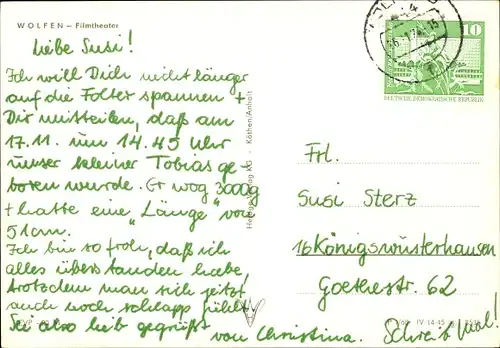 WOLFEN – Filmtheater
Liebe Susi!
Ich will Dich nicht länger
auf die Folter spannen +
Dir mitteilen, daß am
17.11. um 14.45 Uhr
unser kleiner Tobias ge
boren wurde. Er wog 3000g
+ hatte eine „Länge" von
51cm.
Ich bin so froh, daß ich
alles überstanden habe,
trotzdem man sich jetzt
auch noch schlapp fühlt.
Sei also lieb gegrüßt
von Christina.
Schreib mal!
KG · Köthen/Anhalt
10
DEUTSCHE DEMOKRATISCHE REPUBLIK
Frl.
Susi Sterz
16 Königswusterhausen
Goethestr. 62
IV-14-45